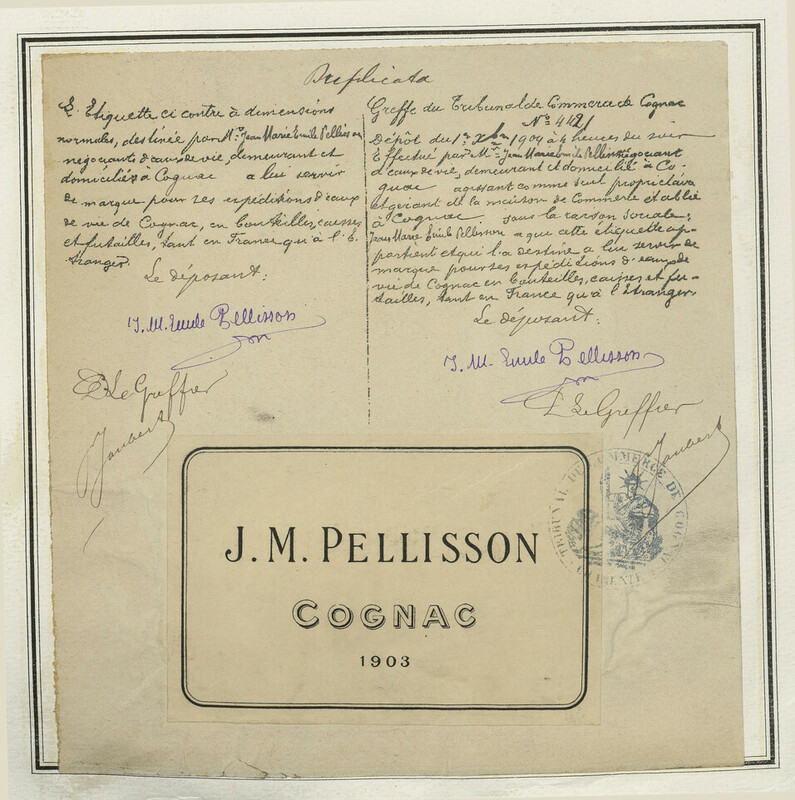 Duplicata
L'Etiquette ci contre à dimensions
normales, destinée par Mr. Jean Marie Emile Pellisson
négociants d'eaux de vie, demeurant et
domiciliés à Cognac a lui servir
de marque pour ses expéditions d'eaux
de vie de Cognac, en bouteilles, caisses
et futailles, tant en France qu'à l'E
tranger.
Le déposant:
J. M. Emile Pellisson
P. Le Greffier
Joubert
Greffe du Tribunal de Commerce de Cognac
No 4421
Dépôt du 1er Xbre 1904 à 4 heures du soir
Effectué par Mr. Jean Marie Emile Pellisson négociant
d'eaux de vie, demeurant et domicilié à Co-
gnac agissant comme seul propriétaire
et gérant de la maison de Commerce établie
à Cognac sous la raison sociale:
Jean Marie Emile Pellisson a que cette étiquette ap-
partient et qu'il l'a destine a lui servir de
marque pour ses expéditions d'eaux de
vie de Cognac en bouteilles, caisses et fu-
tailles, tant en France qu'à l'Etranger
Le déposant:
J. M. Emile Pellisson
P. Le Greffier
Joubert
TRIBUNAL DE COMMERCE DE COGNAC
J. M. PELLISSON
COGNAC
1903